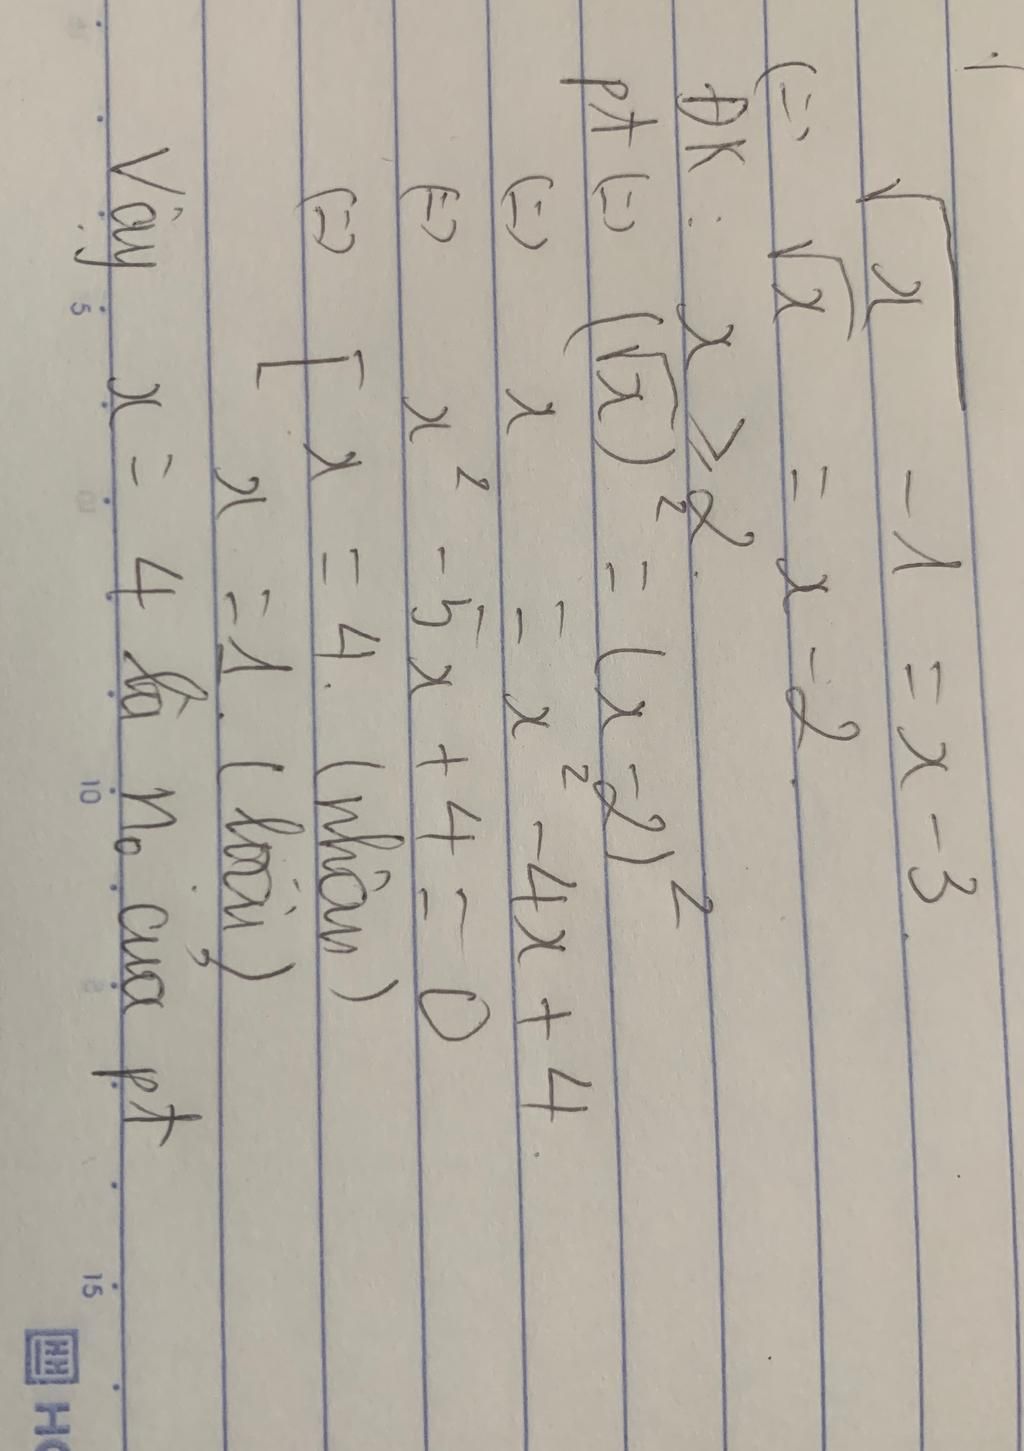 √x - 1 = x - 3.
(=) √x = x - 2.
ĐK : x ≥ 2.
pt (=) (√x)² = (x - 2)²
(=) x = x² - 4x + 4.
(=) x² - 5x + 4 = 0
(=) [ x = 4. (nhận)
x = 1. (loại)
Vậy x = 4 là n₀ của pt
5 10 15
HH Ho